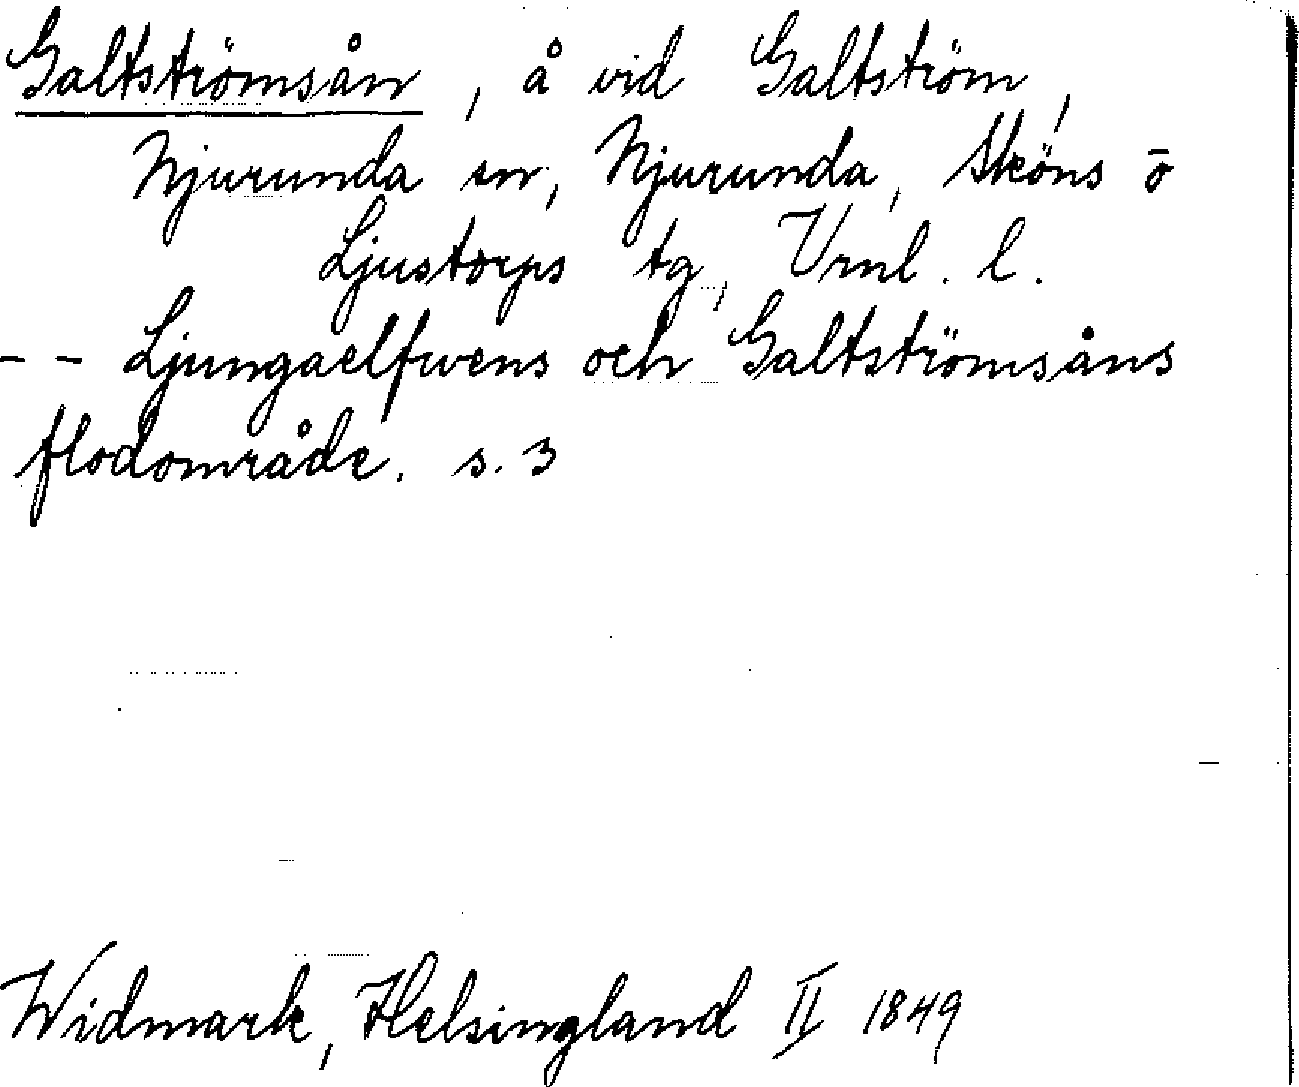 Galtströmsån, å vid Galtström,
Njurunda sn, Njurunda, Sköns o
Ljustorps tg, Vrnl. l.
- - Ljungaelfwens och Galtströmsåns
flodområde. s. 3
Widmark, Helsingland II 1849